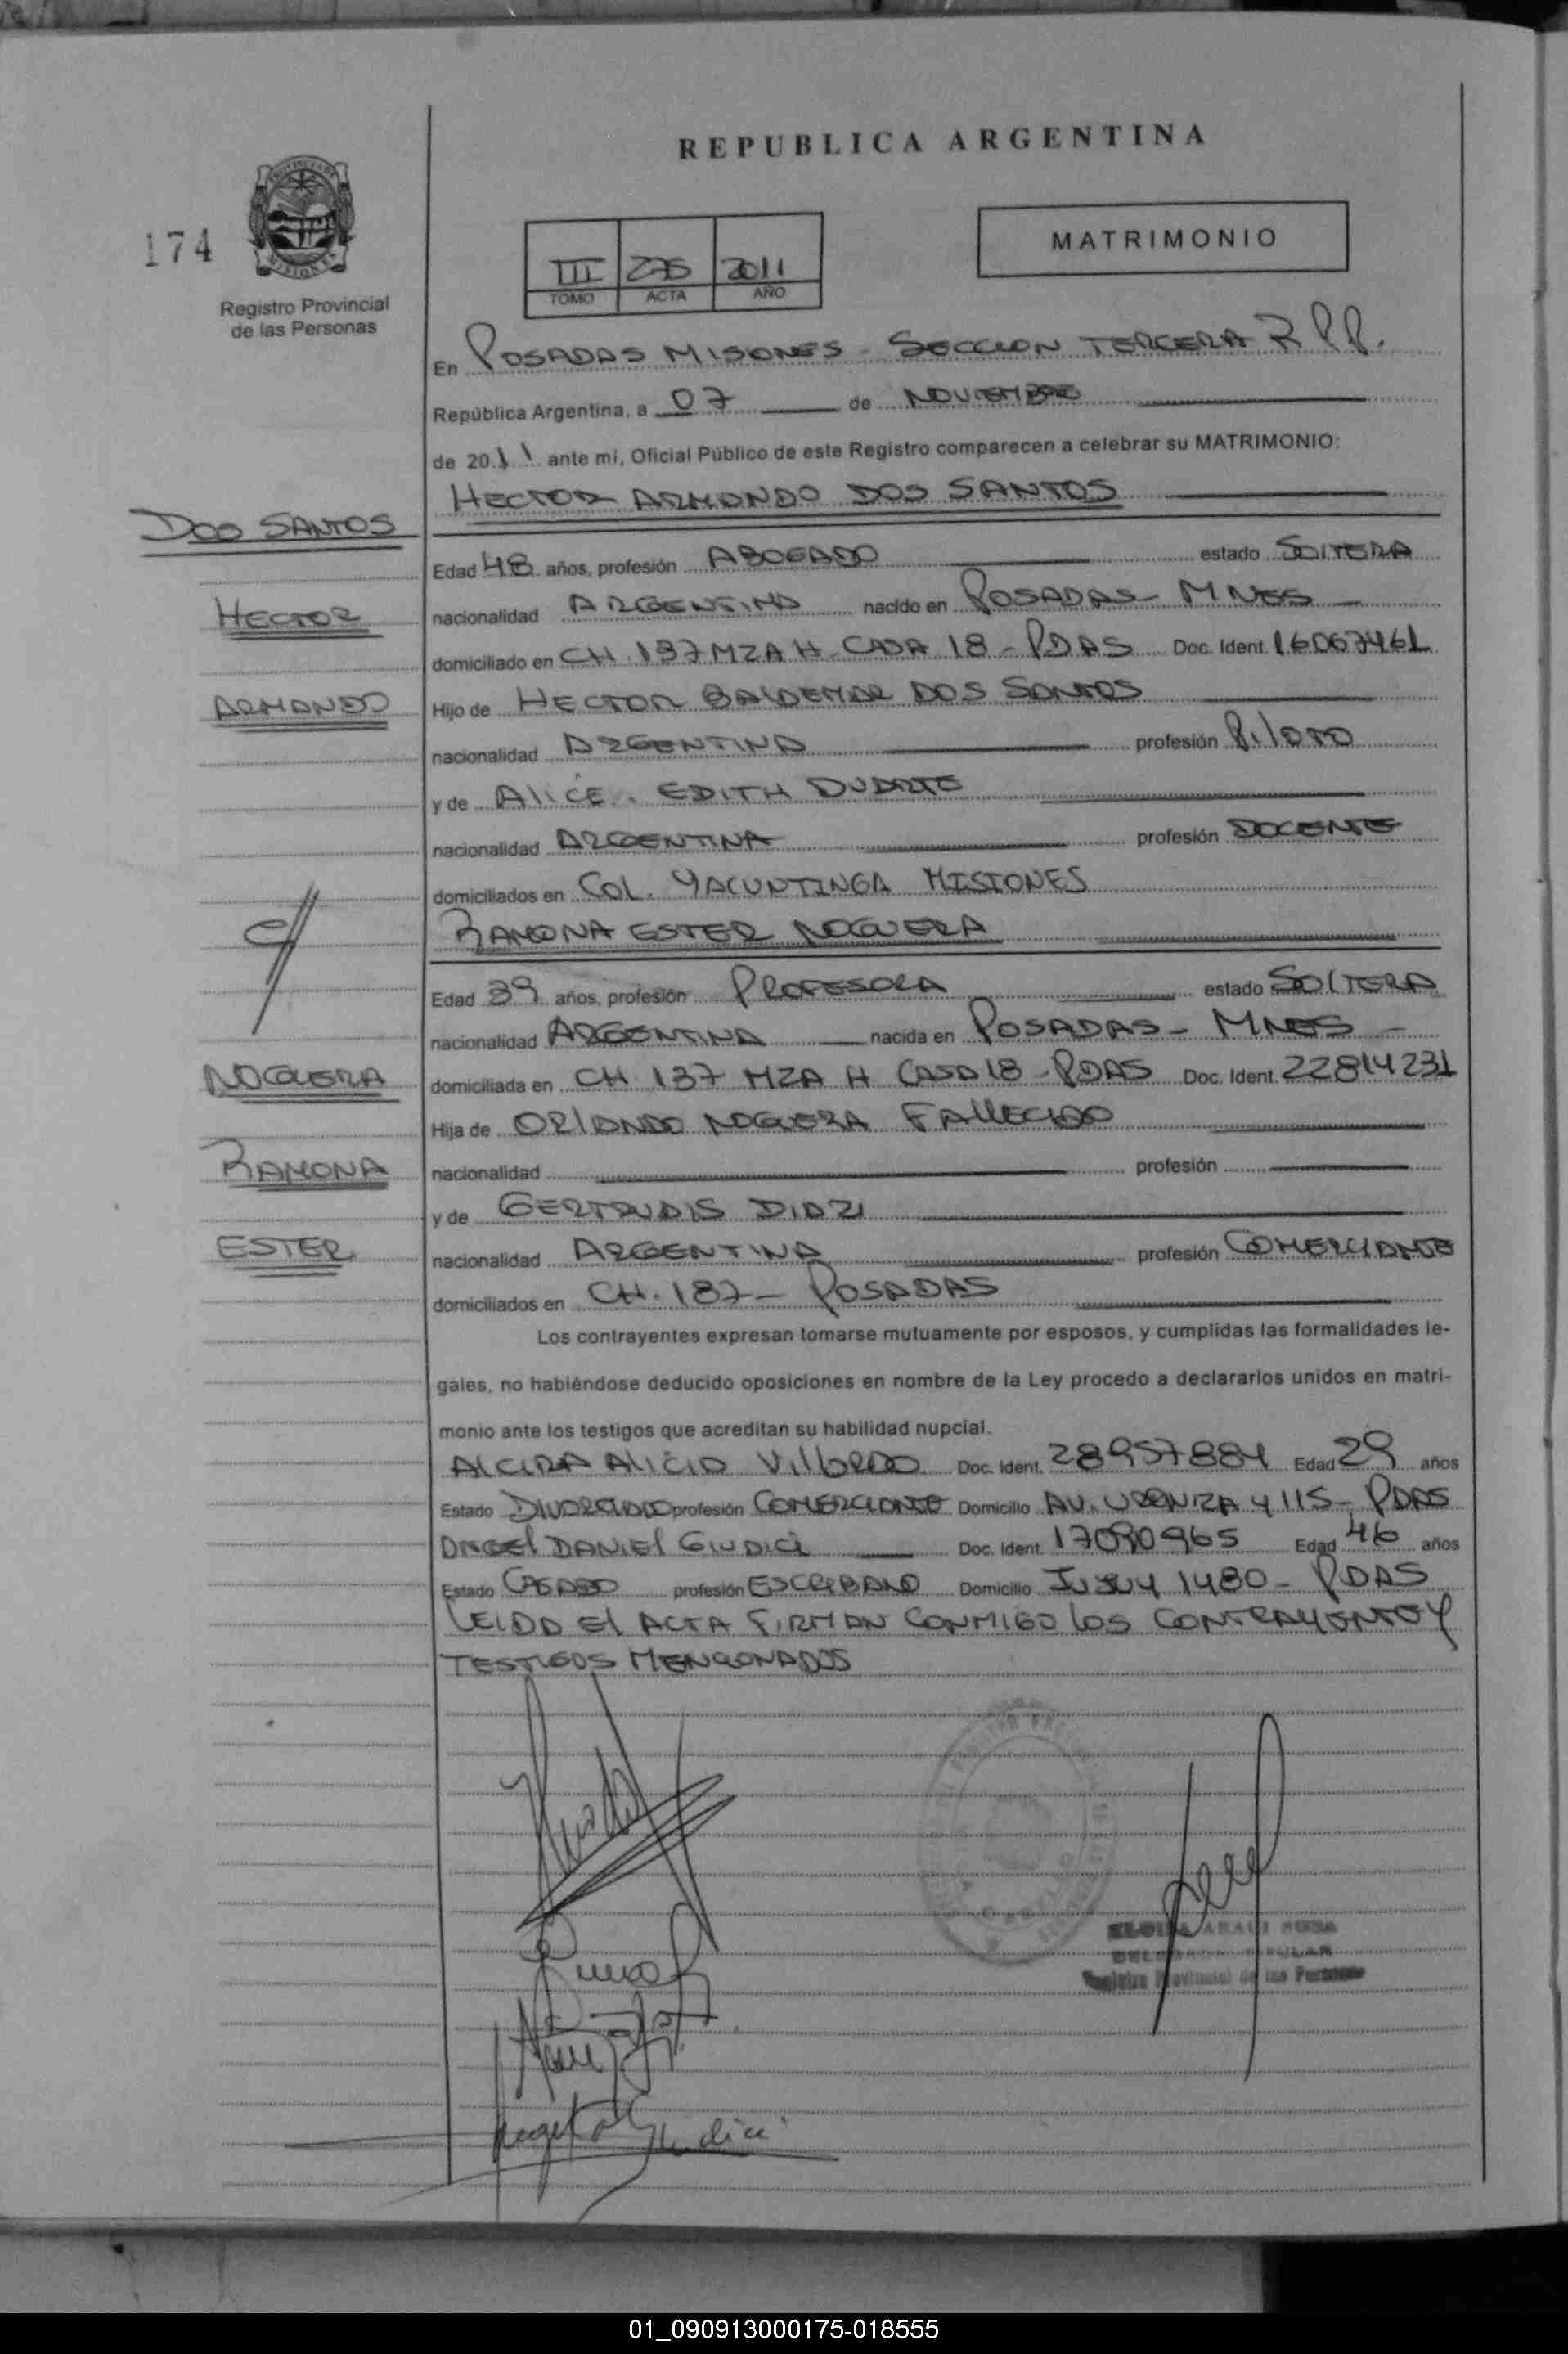 REPUBLICA ARGENTINA
174
MATRIMONIO
III 275 2011
TOMO ACTA AÑO
Registro Provincial
de las Personas
En POSADAS MISIONES - SECCION TERCERA R.P.P.
República Argentina, a 07 de NOVIEMBRE
de 2011 ante mí, Oficial Público de este Registro comparecen a celebrar su MATRIMONIO:
HECTOR ARMANDO DOS SANTOS
DOS SANTOS
Edad 48 años, profesión ABOGADO estado SOLTERA
HECTOR
nacionalidad ARGENTINA nacido en POSADAS - MNES
domiciliado en CH. 137 MZA H CASA 18 - PDAS Doc. Ident. 16067461
ARMANDO
Hijo de HECTOR BALDEMAR DOS SANTOS
nacionalidad ARGENTINA profesión PILOTO
y de ALICE. EDITH DUARTE
nacionalidad ARGENTINA profesión DOCENTE
domiciliados en COL. YACUNTINGA MISIONES
RAMONA ESTER NOGUERA
Edad 39 años, profesión PROFESORA estado SOLTERA
nacionalidad ARGENTINA nacida en POSADAS - MNES -
NOGUERA
domiciliada en CH 137 MZA H CASA 18 - PDAS Doc. Ident. 22814231
Hija de ORLANDO NOGUERA FALLECIDO
RAMONA
nacionalidad profesión
y de GERTRUDIS DIAZ
ESTER
nacionalidad ARGENTINA profesión COMERCIANTE
domiciliados en CH. 187 - POSADAS
Los contrayentes expresan tomarse mutuamente por esposos, y cumplidas las formalidades le-
gales, no habiéndose deducido oposiciones en nombre de la Ley procedo a declararlos unidos en matri-
monio ante los testigos que acreditan su habilidad nupcial.
ALCIRA ALICIA VILLORDO Doc. Ident. 28957884 Edad 29 años
Estado DIVORCIADO profesión COMERCIANTE Domicilio AV. URQNIZA Y 115 - PDAS
ANGEL DANIEL GIUDICI Doc. Ident. 17090965 Edad 46 años
Estado CASADO profesión ESCRIBANO Domicilio JUJUY 1480 - PDAS
LEIDA EL ACTA FIRMAN CONMIGO LOS CONTRAYENTES Y
TESTIGOS MENCIONADOS
Registro Provincial de las Personas
01_090913000175-018555